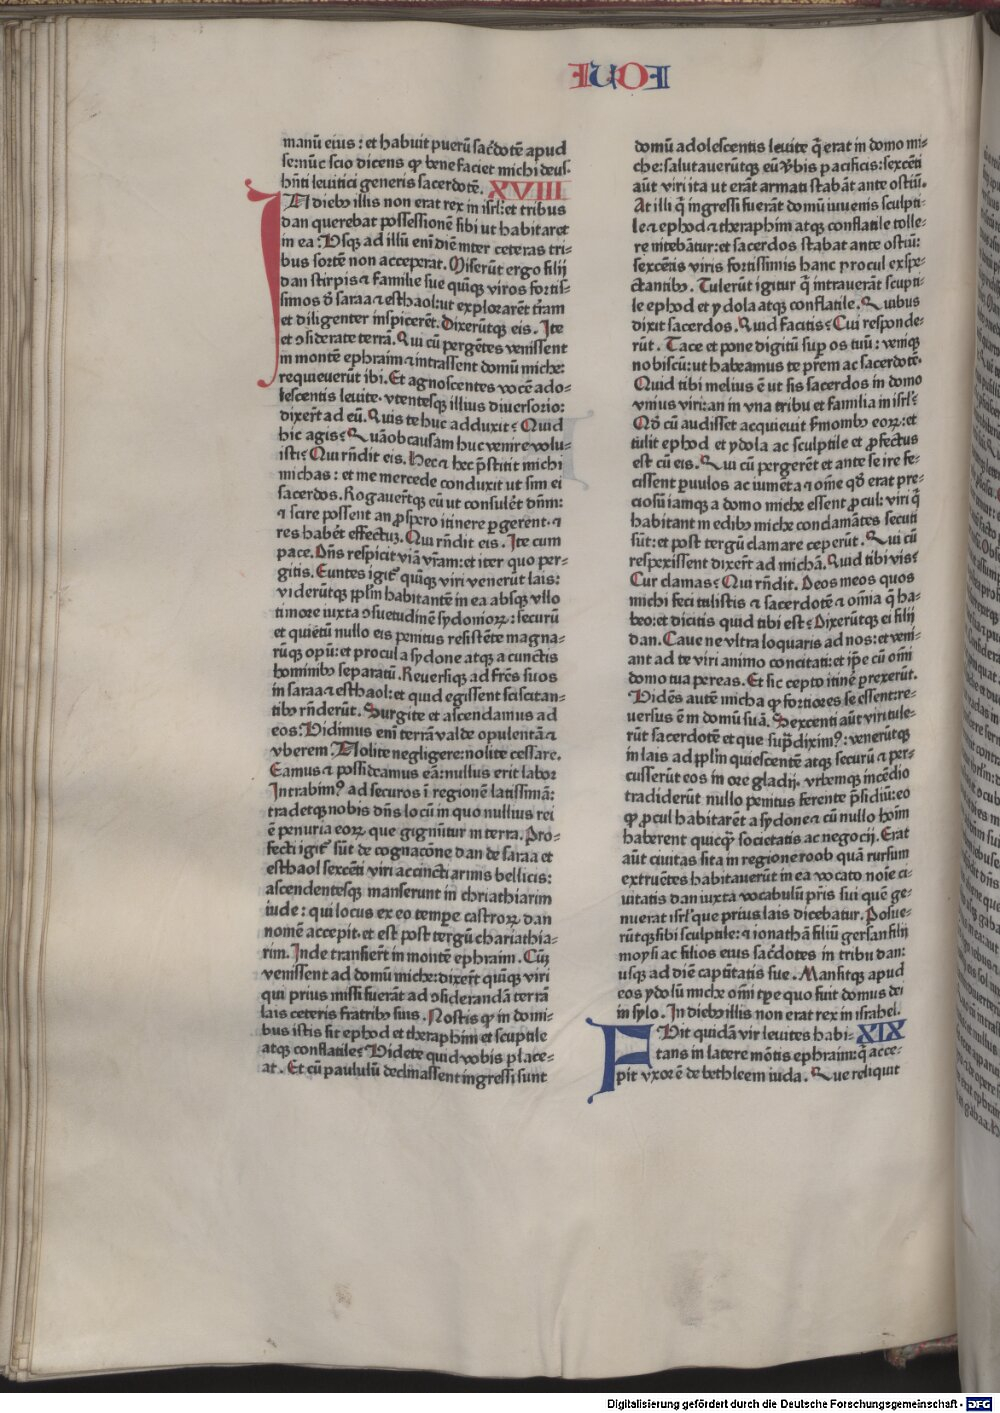 EQUE
manū eius: et habuit puerū sac̄dotē apud
se: nūc scio dicens ꝙ bene faciet michi deus
hn̄ti leuitici generis sacerdotē. XVIIII
IN dieb9 illis non erat rex in isrl̄: et tribus
dan querebat possessionē sibi ut habitaret
in ea: Vsq̨ ad illū enī diē inter ceteras tri-
bus sortē non acceperat. Miserūt ergo filij
dan stirpis ⁊ familie sue quīq̨ viros fortis-
simos d̄ saraa ⁊ esthaol: ut explorarēt tr̄am
et diligenter inspicerēt. Dixerūtq̨ eis. Ite
et ↄsiderate terrā. Qui cū pergētes venissent
in montē ephraim ⁊ intrassent domū miche:
requieuerūt ibi. Et agnoscentes vocē ado-
lescentis leuite. vtentesq̨ illius diuersorio:
dixert̄ ad eū. Quis te huc adduxit? Quid
hic agis? Quāobcausam huc venire volu-
isti? Qui rn̄dit eis. Hec ⁊ hec p̄stitit michi
michas: et me mercede conduxit ut sim ei
sacerdos. Rogauert̄q̨ eū ut consulēt dn̄m:
⁊ scire possent an ꝓspero itinere ꝑgerent. ⁊
res habēt effectuꝫ. Qui rn̄dit eis. Ite cum
pace. Dn̄s respicit viā vr̄am: et iter quo per-
gitis. Euntes igit̄ quīq̨ viri venerūt lais:
viderūtq̨ pplm̄ habitantē in ea absq̨ vllo
timore iuxta ↄsuetudinē sydonioꝝ: securū
et quietū nullo eis penitus resistēte magna-
rūq̨ opū: et procul a sydone atq̨ a cunctis
hominib9 separatū. Reuersiq̨ ad fr̄es suos
in saraa ⁊ esthaol: et quid egissent sciscitan-
tib9 rn̄derūt. Surgite et ascendamus ad
eos: Vidimus enī terrā valde opulentā ⁊
vberem: Nolite negligere: nolite cessare.
Eamus ⁊ possideamus eā: nullus erit labor
Intrabim9 ad securos ī regionē latissimā:
tradetq̨ nobis dn̄s locū in quo nullius rei
ē penuria eoꝝ que gignūtur in terra. Pro-
fecti igit̄ sūt de cognacōne dan de saraa et
esthaol sexcēti viri accincti armis bellicis:
ascendentesq̨ manserunt in chriathiarim
iude: qui locus ex eo tempe castroꝝ dan
nomē accepit. et est post tergū chariathia-
rim. Inde transiert̄ in montē ephraim. Cūq̨
venissent ad domū miche: dixert̄ quīq̨ viri
qui prius missi fuerāt ad ↄsiderandā terrā
lais ceteris fratrib9 suis. Nostis ꝙ in domi-
bus istis sit ephod et theraphim et sculptile
atq̨ conflatile? Videte quid vobis place-
at. Et cū paululū declinassent ingressi sunt
domū adolescentis leuite q̄ erat in domo mi-
che: salutauerūtq̨ eū v̄bis pacificis: sexcēti
aūt viri ita ut erāt armati stabāt ante ostiū.
At illi q̄ ingressi fuerāt domū iuuenis sculpti-
le ⁊ ephod ⁊ theraphim atq̨ conflatile tolle-
re nitebātur: et sacerdos stabat ante ostiū:
sexcētis viris fortissimis hanc procul exspe-
ctantib9. Tulerūt igitur q̄ intrauerāt sculpti-
le ephod et ydola atq̨ conflatile. Quibus
dixit sacerdos. Quid facitis? Cui responde-
rūt. Tace et pone digitū suꝑ os tuū: veniq̨
nobiscū: ut habeamus te prem ac sacerdotē.
Quid tibi melius ē ut sis sacerdos in domo
vnius viri: an in vna tribu et familia in isrl̄?
Qd̄ cū audisset acquieuit s̄monib9 eoꝝ: et
tulit ephod et ydola ac sculptile et ꝓfectus
est cū eis. Qui cū pergerēt et ante se ire fe-
cissent ꝑuulos ac iumēta ⁊ om̄e qd̄ erat pre-
ciosū iamq̨ a domo miche essent ꝓcul: viri q̄
habitant in edib9 miche condamātes secuti
sūt: et post tergū clamare ceperūt. Qui cū
respexissent dixert̄ ad michā. Quid tibi vis?
Cur clamas? Qui rn̄dit. Deos meos quos
michi feci tulistis ⁊ sacerdotē ⁊ om̄ia q̄ ha-
beo: et dicitis quid tibi est? Dixerūtq̨ ei filij
dan. Caue ne vltra loquaris ad nos: et veni-
ant ad te viri animo concitati: et ip̄e cū om̄i
domo tua pereas. Et sic cepto itinē prexerūt.
Vidēs autē micha ꝙ fortiores se essent: re-
uersus ē in domū suā. Sexcenti aūt viri tule-
rūt sacerdotē et que sup̄diximꝰ: venerūtq̨
in lais ad pplm̄ quiescentē atq̨ securū ⁊ per-
cusserūt eos in ore gladij. vrbemq̨ incēdio
tradiderūt nullo penitus ferente p̄sidiū: eo
ꝙ ꝓcul habitarēt a sydone ⁊ cū nullo hoīm
haberent quicq̄ societatis ac negocij. Erat
aūt ciuitas sita in regione roob quā rursum
extruētes habitauerūt in ea vocato noīe ci-
uitatis dan iuxta vocabulū pr̄is sui quē ge-
nuerat isrl̄ que prius lais dicebatur. Posue-
rūtq̨ sibi sculptile: ⁊ ionathā filiū gersan filij
moysi ac filios eius sac̄dotes in tribu dan:
usq̨ ad diē captītatis sue. Mansitq̨ apud
eos ydolū miche om̄i tp̄e quo fuit domus dei
in sylo. In dieb9 illis non erat rex in israhel.
FVit quidā vir leuites habi- XIX
tans in latere mōtis ephraim: q̄ acce-
pit vxorē de bethleem iuda. Que reliquit
Digitalisierung gefördert durch die Deutsche Forschungsgemeinschaft - DFG